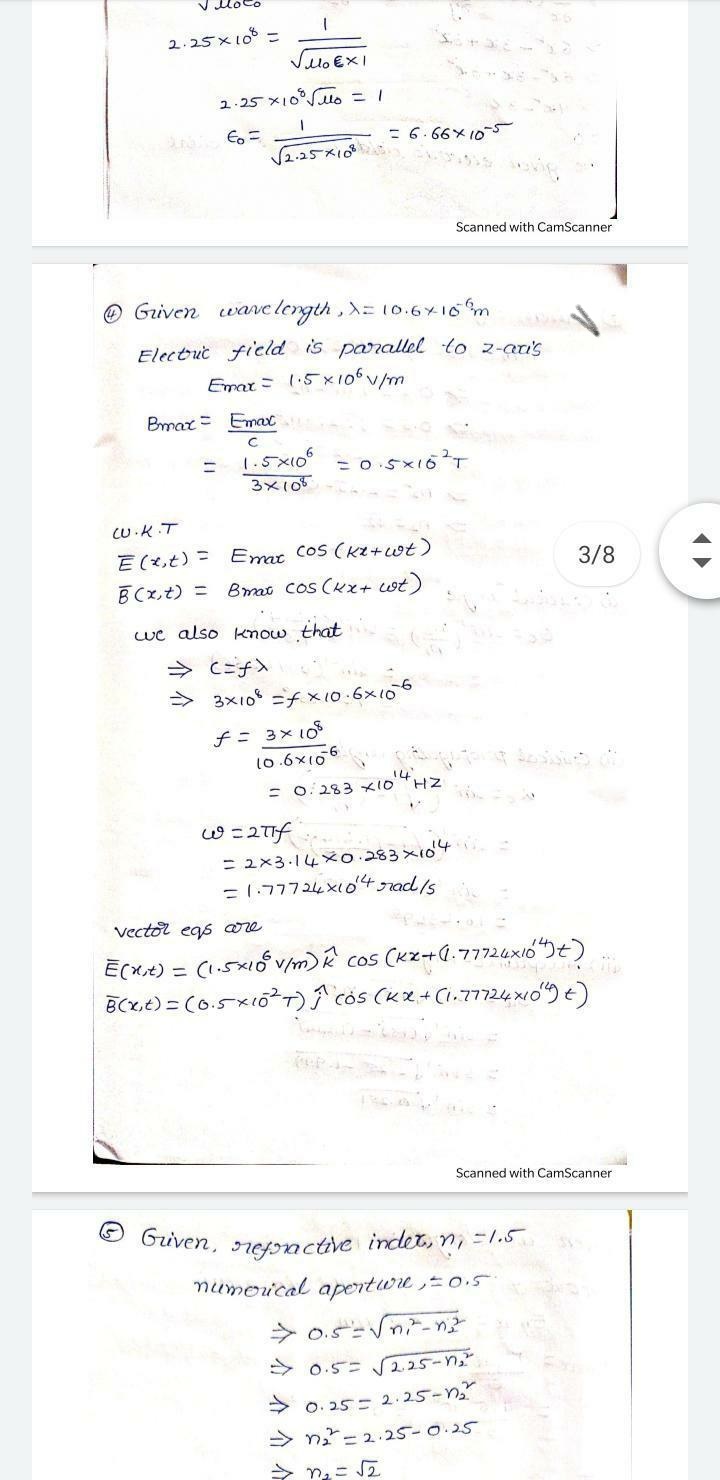 √μ0ε0
2.25×10⁸ = 1/√μ0 ε×1
2.25×10⁸√μ0 = 1
ε0 = 1/√2.25×10⁸ = 6.66×10⁻⁵
Scanned with CamScanner
④ Given wavelength, λ= 10.6×10⁻⁶m
Electric field is parallel to z-axis
Emax = 1.5×10⁶ V/m
Bmax = Emax/c
= 1.5×10⁶/3×10⁸ = 0.5×10⁻²T
W.K.T
Ē(x,t) = Emax cos(kx+ωt)
B̄(x,t) = Bmax cos(kx+ωt)
3/8
we also know that
⇒ c=fλ
⇒ 3×10⁸ =f×10.6×10⁻⁶
f = 3×10⁸/10.6×10⁻⁶
= 0.283×10¹⁴HZ
ω=2πf
= 2×3.14×0.283×10¹⁴
= 1.77724×10¹⁴rad/s
vector eqs are
Ē(x,t) = (1.5×10⁶ V/m) k̂ cos (kx+(1.77724×10¹⁴)t)
B̄(x,t) = (0.5×10⁻²T) ĵ cos (kx+(1.77724×10¹⁴)t)
Scanned with CamScanner
⑤ Given, refractive index, n₁ =1.5
numerical aperture, = 0.5
⇒ 0.5=√n₁²-n₂²
⇒ 0.5= √2.25-n₂²
⇒ 0.25 = 2.25-n₂²
⇒ n₂² = 2.25-0.25
⇒ n₂= √2